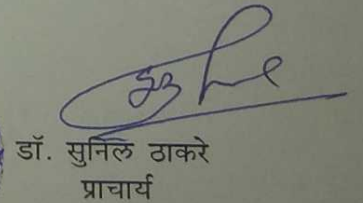 डॉ. सुनिल ठाकरे
प्राचार्य